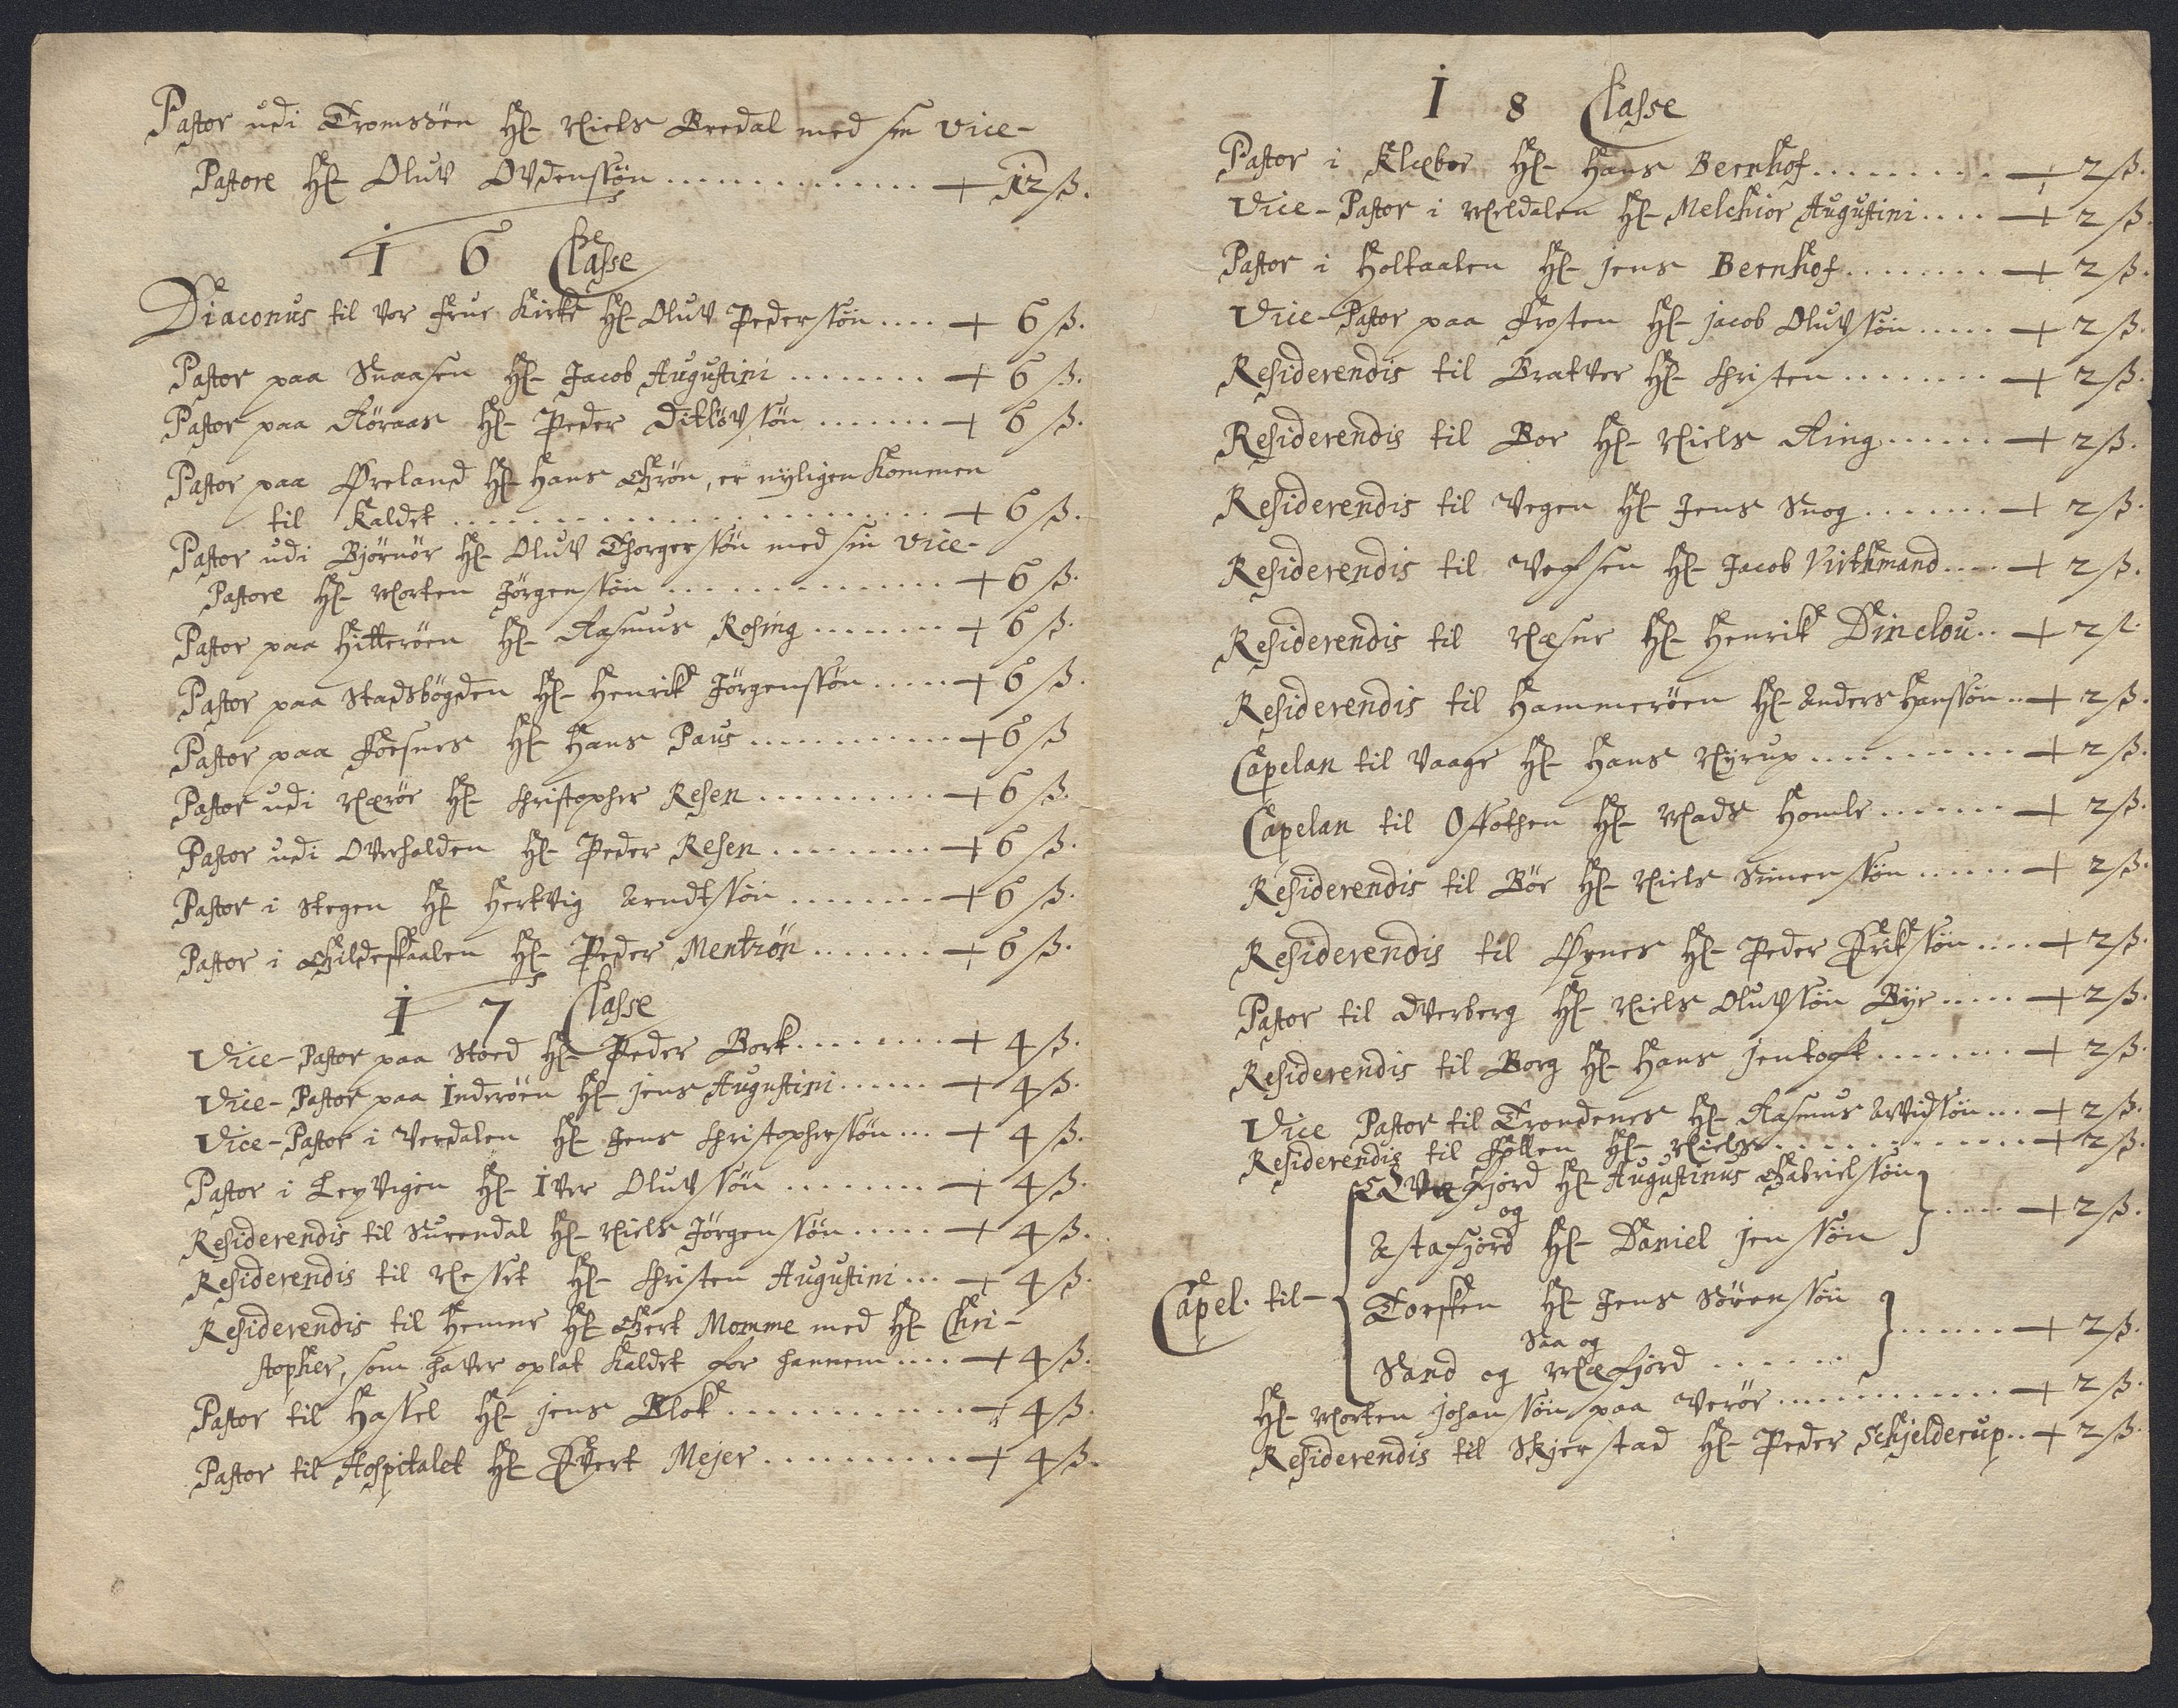 Pastor udi Tromsöen Hr. Niels Bredal med sin Vice-
Pastore Hr. Oluv Ovdenssön ............... + 12 ß.
16 Classe
Diaconus til vor Frue Kirke Hr. Oluv Pederssön .... + 6 ß.
Pastor paa Snaasen Hr. Jacob Augustini ........ + 6 ß.
Pastor paa Röraas Hr. Peder Ditlövssön ....... + 6 ß.
Pastor paa Øreland Hr. Hans Grön, er nyligen kommen
til kaldet ........................ + 6 ß.
Pastor udi Bjørnör Hr. Oluv Thorgerssön med sin Vice-
Pastore Hr. Morten Jörgenssön ............. + 6 ß.
Pastor paa Hitteröen Hr. Rasmus Rosing ........ + 6 ß.
Pastor paa Stadsbögden Hr. Henrik Jörgenssön ..... + 6 ß.
Pastor paa Foesnes Hr. Hans Paus ............ + 6 ß
Pastor udi Nærör Hr. Christopher Resen .......... + 6 ß.
Pastor udi Overhalden Hr. Peder Resen ......... + 6 ß.
Pastor i Stegen Hr. Hertvig Arndtssön ........ + 6 ß.
Pastor i Gildeskaalen Hr. Peder Mentzøn ....... + 6 ß.
17 Classe
Vice-Pastor paa Stoed Hr. Peder Bork ........ + 4 ß.
Vice-Pastor paa Inderöen Hr. Jens Augustini ...... + 4 ß.
Vice-Pastor i Verdalen Hr. Jens Christopherssön ... + 4 ß.
Pastor i Lexvigen Hr. Iver Oluvssön ........ + 4 ß.
Residerendis til Surendal Hr. Niels Jörgenssön ..... + 4 ß.
Residerendis til Nesset Hr. Christen Augustini ... + 4 ß.
Residerendis til Hemne Hr. Gert Momme med Hr. Chri-
stopher, som haver oplat kaldet for hannem .... + 4 ß.
Pastor til Hassel Hr. Jens Blok ............. + 4 ß.
Pastor til Hospitalet Hr. Evert Mejer ........... + 4 ß.
18 Classe
Pastor i Klæboe Hr. Hans Bernhof .......... + 2 ß.
Vice-Pastor i Meldalen Hr. Melchior Augustini .... + 2 ß.
Pastor i Holtaalen Hr. Jens Bernhof ........ + 2 ß.
Vice-Pastor paa Frosten Hr. Jacob Oluvssön ..... + 2 ß.
Residerendis til Bratver Hr. Christen ........ + 2 ß.
Residerendis til Bor Hr. Niels Ring ...... + 2 ß.
Residerendis til Vegen Hr. Jens Snog ....... + 2 ß.
Residerendis til Vefsen Hr. Jacob Virthmand .... + 2 ß.
Residerendis til Næsne Hr. Henrik Dinclou .. + 2 ß.
Residerendis til Hammeröen Hr. Anders Hanssön .. + 2 ß.
Capelan til Vaage Hr. Hans Nyrup .......... + 2 ß.
Capelan til Ofothen Hr. Mads Homle ....... + 2 ß.
Residerendis til Bör Hr. Niels Simenssön ..... + 2 ß.
Residerendis til Øxnes Hr. Peder Erikssön .... + 2 ß.
Pastor til Dverberg Hr. Niels Oluvssön Bye ..... + 2 ß.
Residerendis til Borg Hr. Hans Jentoft ....... + 2 ß.
Vice Pastor til Trondenes Hr. Rasmus Arvidssön ... + 2 ß.
Residerendis til Folden Hr. Niels ............ + 2 ß.
Qvæfjord Hr. Augustinus Gabrielssön
og
Astafjord Hr. Daniel Jenssön ..... + 2 ß.
Capel. til- Torsken Hr. Jens Sörenssön
Saa og
Sand og Mefjord ...... + 2 ß.
Hr. Morten Johanssön paa Veröe ............ + 2 ß.
Residerendis til Skjerstad Hr. Peder Schjelderup .. + 2 ß.